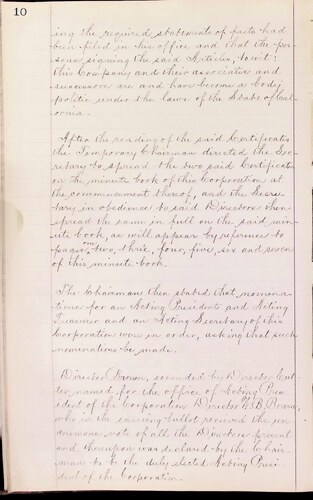 10
ing the required statements of facts had
been filed in his office and that the per-
sons signing the said Articles, to wit:
this Company and their associates and
successors are and have become a body
politic under the laws of the State of Cal-
ifornia.
After the reading of the said Certificates
the Temporary Chairman directed the Sec-
retary to spread the two said Certificates
on the minute book of this Corporation at
the commencement thereof, and the Secre-
tary in obedience to said Directors then
spread the same in full on the said min-
ute book, as will appear by reference to
pages one, two, three, four, five, six and seven
of this minute book.
The Chairman then stated that nomina-
tions for an Acting President and Acting
Treasurer and an Acting Secretary of this
Corporation were in order, asking that such
nominations be made.
Director Brown, seconded by Director
ter, named for the office of Acting Pres-
ident of the Corporation Director Brown,
who in the ensuing ballot received the un-
animous vote of all the Directors present
and thereupon was declared by the Chair-
man to be the duly elected Acting Presi-
dent of the Corporation.